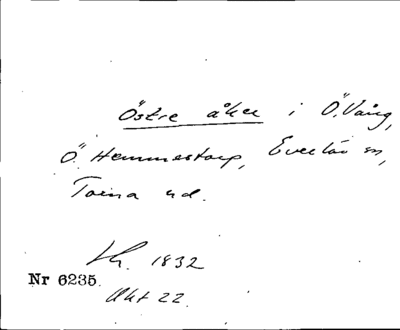 Östre åker i Ö. Vång,
Ö. Hemmestorp, Everlöv sn,
Torna hd.
Lh. 1832
Nr 6235.
Akt 22.